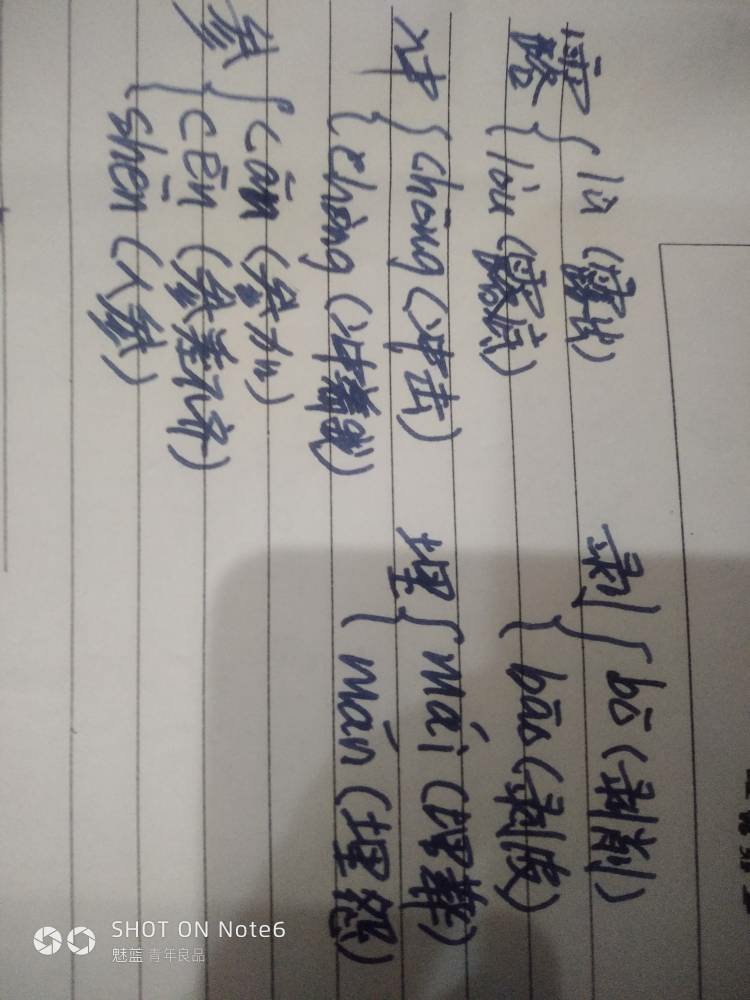 露 { lù (露出)
lòu (
剥 { bō (剥削)
bāo (剥皮)
冲 { chōng (冲击)
chòng (冲着我)
埋 { mái (埋葬)
mán (埋怨)
参 { cān (参加)
cēn (参差不齐)
shēn (人参)
SHOT ON Note6
魅蓝 青年良品